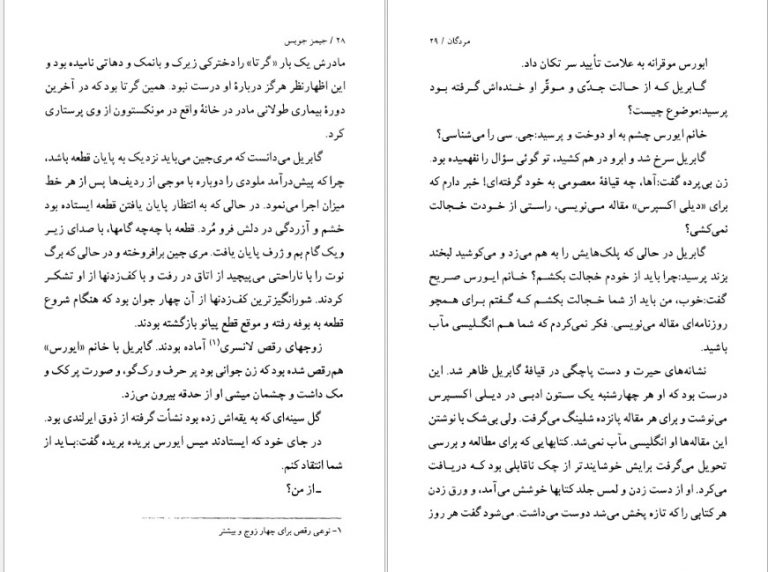 ۲۸ / جیمز جویس
مادرش یک بار «گرتا» را دخترکی زیرک و بانمک و دهاتی نامیده بود و
این اظهارنظر هرگز دربارهٔ او درست نبود. همین گرتا بود که در آخرین
دورهٔ بیماری طولانی مادر در خانهٔ واقع در مونکستوون از وی پرستاری
کرد.
گابریل می‌دانست که مری‌جین می‌باید نزدیک به پایان قطعه باشد،
چرا که پیش‌درآمد ملودی را دوباره با موجی از ردیف‌ها پس از هر خط
میزان اجرا می‌نمود. در حالی که به انتظار پایان یافتن قطعه ایستاده بود
خشم و آزردگی در دلش فرو مُرد. قطعه با چه‌چه گامها، با صدای زیر
ویک گام بم و ژرف پایان یافت. مری جین برافروخته و در حالی که برگ
نوت را با ناراحتی می‌پیچید از اتاق در رفت و با کف‌زدنها از او تشکر
کردند. شورانگیزترین کف‌زدنها از آن چهار جوان بود که هنگام شروع
قطعه به بوفه رفته و موقع قطع پیانو بازگشته بودند.
زوجهای رقص لانسری(۱) آماده بودند. گابریل با خانم «ایورس»
هم‌رقص شده بود که زن جوانی بود پر حرف و رک‌گو، و صورت پرکک و
مک داشت و چشمان میشی او از حدقه بیرون می‌زد.
گل سینه‌ای که به یقه‌اش زده بود نشأت گرفته از ذوق ایرلندی بود.
در جای خود که ایستادند میس ایورس بریده بریده گفت:باید از
شما انتقاد کنم.
ـ از من؟
۱- نوعی رقص برای چهار زوج و بیشتر
مردگان / ۲۹
ایورس موقرانه به علامت تأیید سر تکان داد.
گابریل که از حالت جدّی و موقّر او خنده‌اش گرفته بود
پرسید:موضوع چیست؟
خانم ایورس چشم به او دوخت و پرسید:جی. سی را می‌شناسی؟
گابریل سرخ شد و ابرو در هم کشید، تو گوئی سؤال را نفهمیده بود.
زن بی‌پرده گفت:آها، چه قیافهٔ معصومی به خود گرفته‌ای! خبر دارم که
برای «دیلی اکسپرس» مقاله می‌نویسی، راستی از خودت خجالت
نمی‌کشی؟
گابریل در حالی که پلک‌هایش را به هم می‌زد و می‌کوشید لبخند
بزند پرسید:چرا باید از خودم خجالت بکشم؟ خانم ایورس صریح
گفت:خوب، من باید از شما خجالت بکشم که گفتم برای همچو
روزنامه‌ای مقاله می‌نویسی. فکر نمی‌کردم که شما هم انگلیسی مآب
باشید.
نشانه‌های حیرت و دست پاچگی در قیافهٔ گابریل ظاهر شد. این
درست بود که او هر چهارشنبه یک ستون ادبی در دیلی اکسپرس
می‌نوشت و برای هر مقاله پانزده شلینگ می‌گرفت. ولی بی‌شک با نوشتن
این مقاله‌ها او انگلیسی مآب نمی‌شد. کتابهایی که برای مطالعه و بررسی
تحویل می‌گرفت برایش خوشایندتر از چک ناقابلی بود که دریافت
می‌کرد. او از دست زدن و لمس جلد کتابها خوشش می‌آمد، و ورق زدن
هر کتابی را که تازه پخش می‌شد دوست می‌داشت. می‌شود گفت هر روز